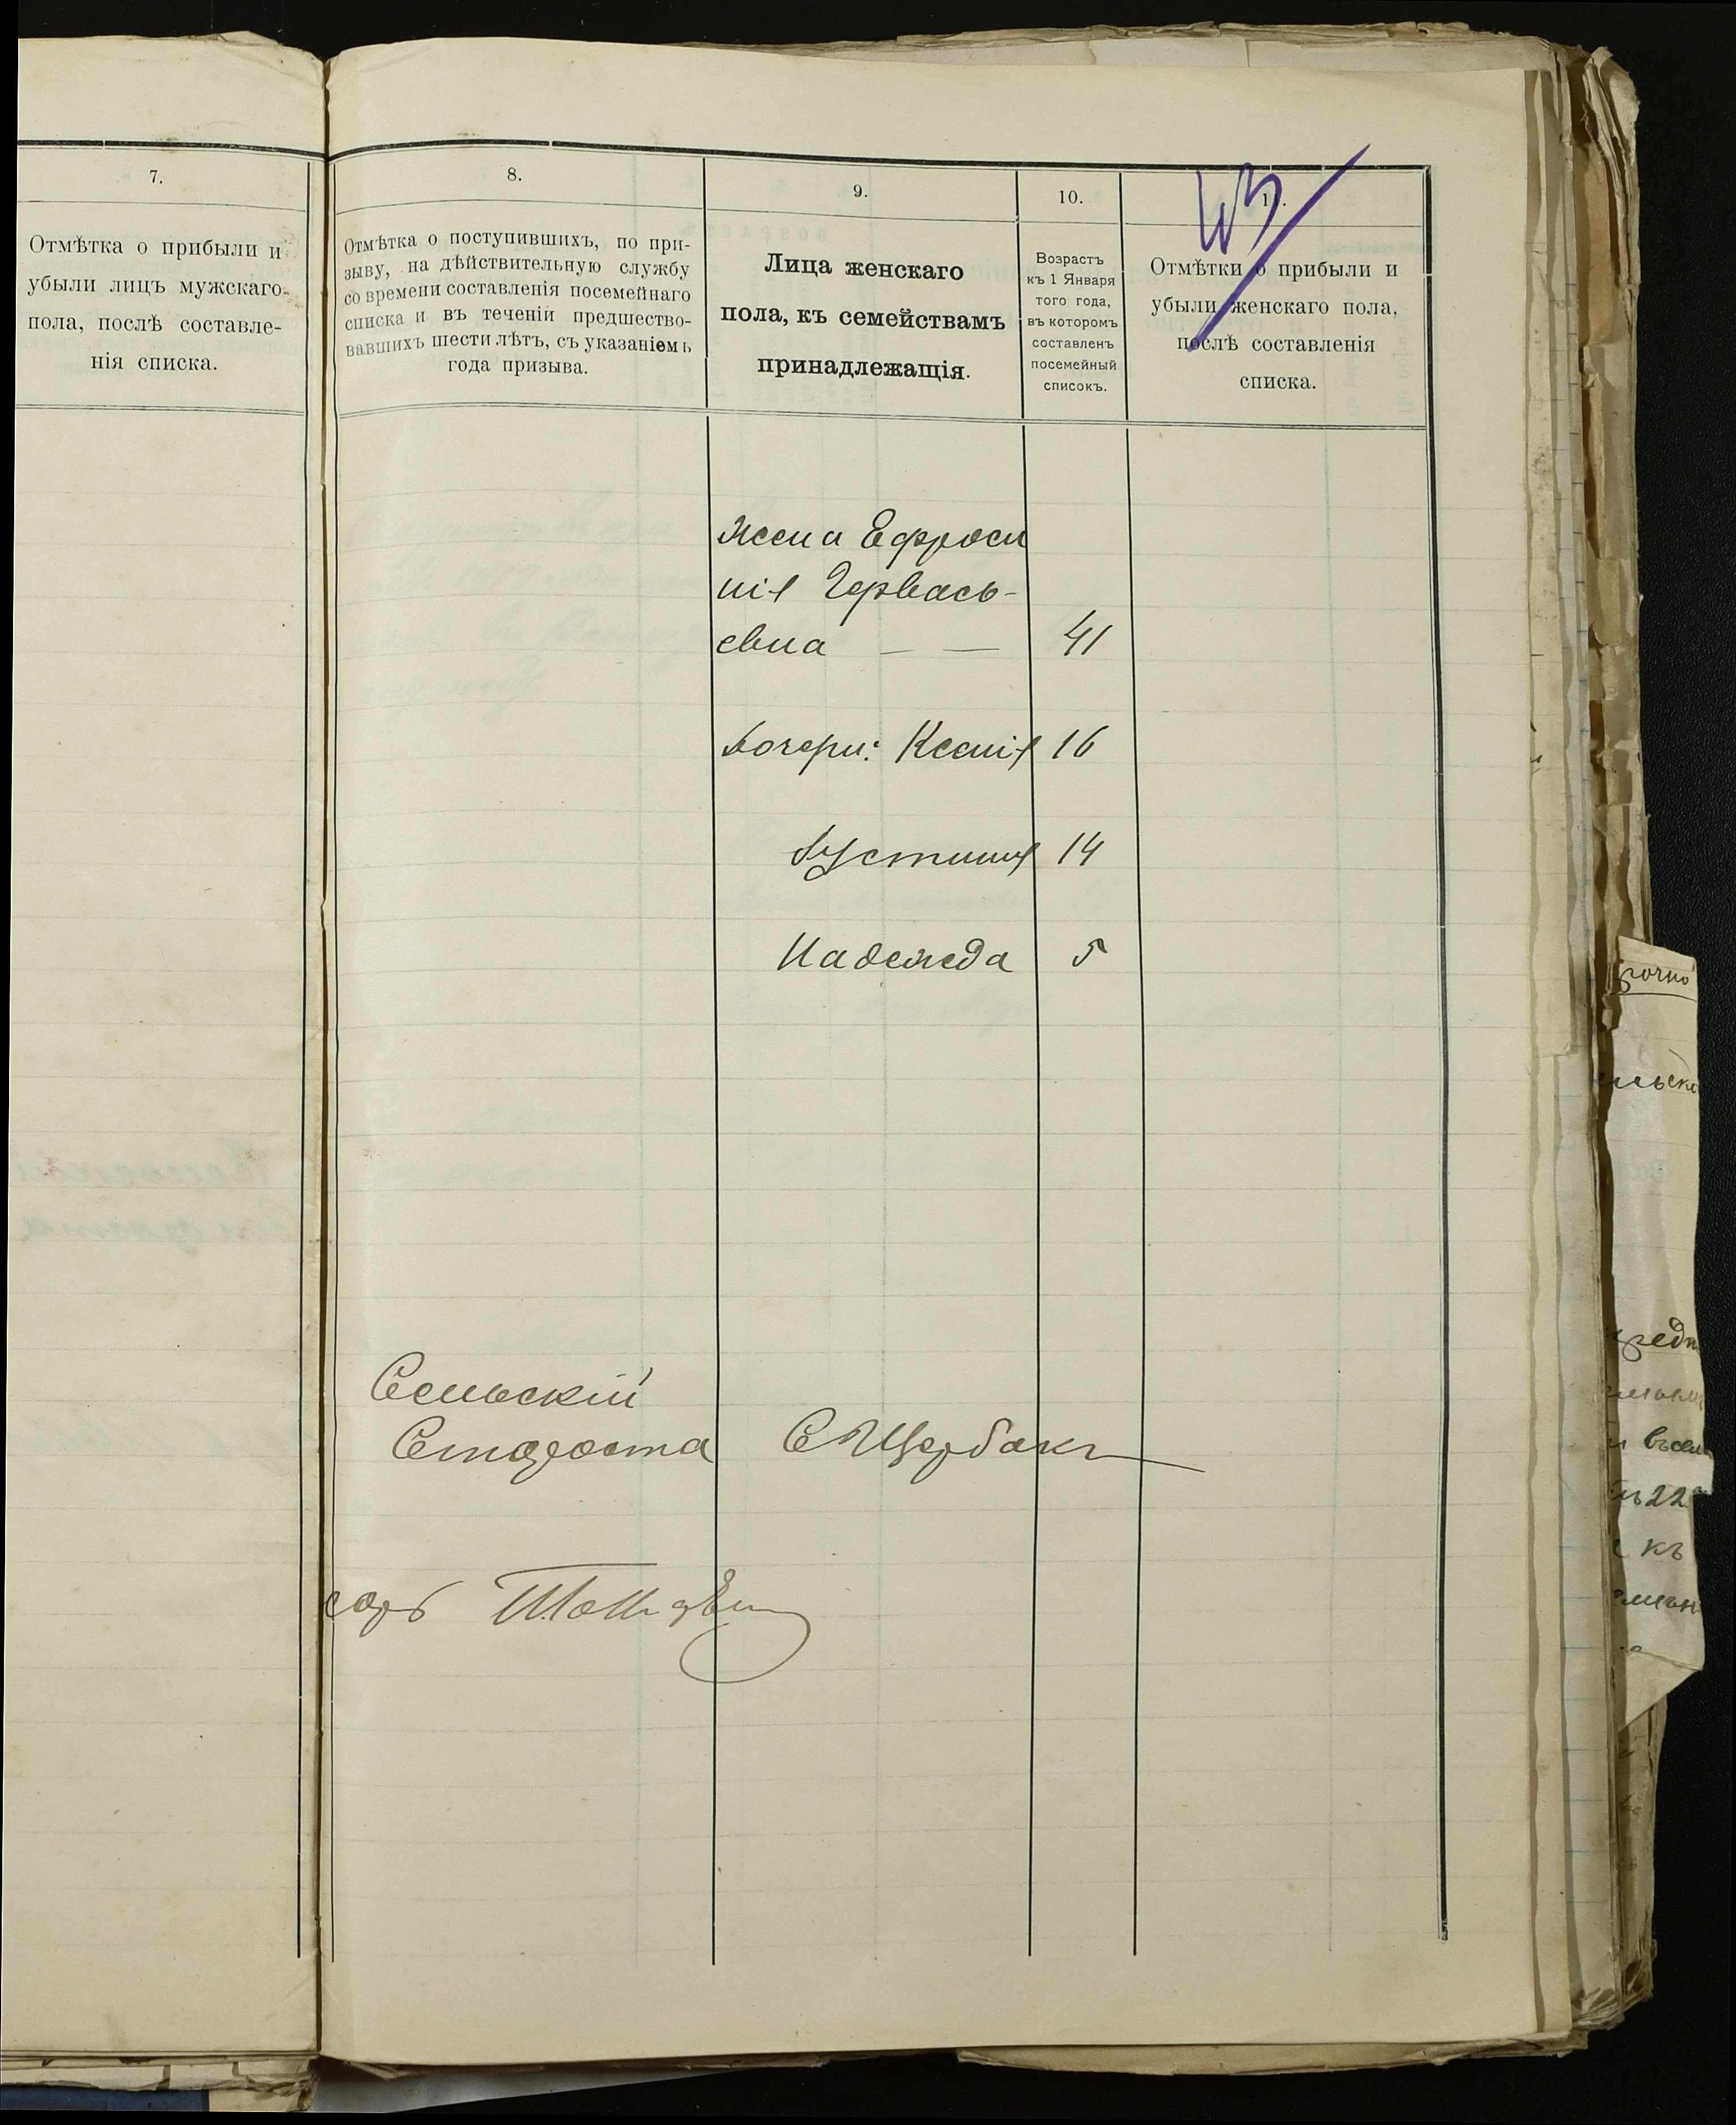 7.
Отмѣтка о прибыли и
убыли лицъ мужскаго
пола, послѣ составле-
нія списка.
8.
Отмѣтка о поступившихъ, по при-
зыву, на дѣйствительную службу
со времени составленія посемейнаго
списка и въ теченіи предшество-
вавшихъ шести лѣтъ, съ указаніемъ
года призыва.
9.
Лица женскаго
пола, къ семействамъ
принадлежащія.
10.
Возрастъ
къ 1 Января
того года,
въ которомъ
составленъ
посемейный
списокъ.
Отмѣтки о прибыли и
убыли женскаго пола,
послѣ составленія
списка.
Жена Ефроси
нія Герваcь-
евна — — 41
Дочери: Ксенія 16
Устинія 14
Надежда 5
Сельскій
Староста С Щербакъ
къ